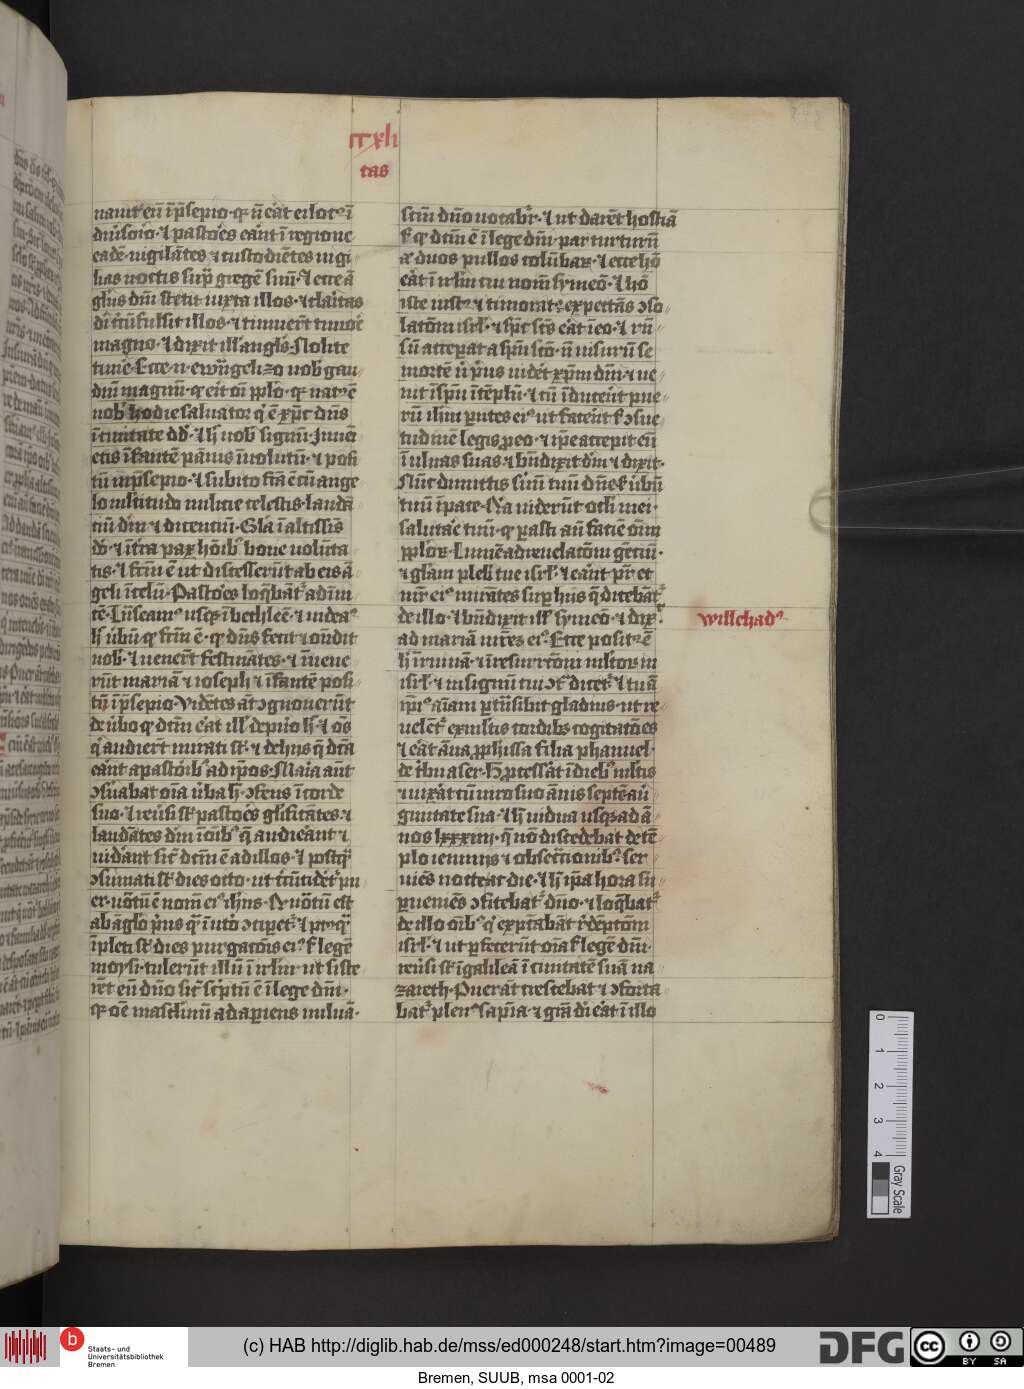 ccxli
tas
nauit eū ī p̄sepio · qr n̄ eāt ei locꝰ ī
diūsoio · ⁊ pastoēs eānt ī regione
eadē uigilātes ⁊ custodiētes uigi
lias noctis suꝑ gregē suū · ⁊ ecce ā
glūs dn̄i stetit iuxta illos · ⁊ claitas
dī cc̄ūfulsit illos · ⁊ timuert̄ timoē
magno · ⁊ dixit ill' anglūs · Nolite
timē · Ecce n̄ ewn̄gelizo uob̄ gau
diū magnū · qd̄ eit oī pplo · qr natꝰ ē
uob̄ hodie saluator q̄ ē xp̄c dn̄s
ī ciuitate dd̄ · ⁊ h̄ uob̄ signū · Jnuēi
etis īfantē pānis īuolutū · ⁊ posi
tū ī p̄sepio · ⁊ subito fc̄a ē cū ange
lo multitudo milicie celestis · laudā
ciū dm̄ ⁊ dicenciū · Glā ī altissīs
dō · ⁊ ī tr̄a pax hōib̄ bone uolūta
tis · ⁊ fc̄m ē ut discesserūt ab eis ā
geli ī celū · Pastoēs loq̄bāt̄ ad īui
cē · Tn̄seamꝰ usqꝫ ī bethleē · ⁊ uideaꝰ
h̄ ūbū qd̄ fc̄m ē · qd̄ dn̄s fecit ⁊ ondit
nob̄ · ⁊ uenert̄ festinātes · ⁊ īuene
rūt mariā ⁊ ioseph ⁊ īfantē posi
tū ī p̄sepio · Vidētes at̄ ɔgnouerūt
de ūbo qd̄ dc̄m eāt ill' de puo h̄ · ⁊ oēs
q̄ audiert̄ mirati st̄ · ⁊ de hijs q̄ dc̄a
eānt a pastoib̄ ad ip̄os · Maia aut̄
ɔsūabat oīa ūba h̄ · ɔfeēs ī corde
suo · ⁊ reūsi st̄ pastoēs glīficātes · ⁊
laudātes dm̄ ī oīb̄ q̄ audieānt ⁊
uidānt sic̄ dc̄m ē ad illos · ⁊ postqꝫ
ɔsumati st̄ dies octo · ut cc̄ūcidet̄ pu
er · uōtū ē nomē eiꝰ ih̄us · Qd̄ uōtū est
ab āglo p̄us qꝫ ī utō ɔcipet̄ · ⁊ pꝰqꝫ
īpleti st̄ dies purgatōis eiꝰ s̄ legē
moysi · tulerūt illū ī irl̄m ut siste
rēt eū dn̄o sic̄ sc̄ptū ē ī lege dn̄i ·
qr oē masclinū adaꝑiens uuluā ·
scm̄ dn̄o uocabit̄ · ⁊ ut darēt hostiā
s̄ qd̄ dc̄m ē ī lege dn̄i · par turturū
aꝰ duos pullos colūbaꝝ · ⁊ ecce hō
eāt ī irl̄m cui nom̄ symeō · ⁊ hō
iste iustꝰ ⁊ timoratꝰ expectās ɔso
latōm isrl̄ · ⁊ spc̄ sc̄s eāt ī eo · ⁊ rn̄
sū acceperat a spū sc̄o · n̄ uisurū se
mortē n̄ p̄us uidēt xp̄m dn̄i · ⁊ ue
nit ī spū ī tēplū · ⁊ cū īducent̄ pue
rū ih̄m ꝑntes eiꝰ ut facent̄ s̄ ɔsue
tudinē legis ꝓ eo · ⁊ ip̄e accepit eū
ī ulnas suas · ⁊ bn̄dixit dm̄ ⁊ dixit ·
Nūc dimittis s̄uū tuū dn̄e s̄ ūbū
tuū ī pace · Qa uiderūt oc̄li mei ·
salutāe tuū · qd̄ ꝑasti an̄ faciē oīm
pploꝝ · Lumē ad reuelatōm gēciū ·
⁊ glām pleb̄ tue isrl̄ · ⁊ eānt pr̄ et
mr̄ eiꝰ mirātes suꝑ hiis q̄ dicebāt̄
de illo · ⁊ bn̄dixit ill' symeō · ⁊ dix̄
ad mariā mr̄eꝫ eiꝰ · Ecce positꝰ ē
h̄ ī ruinā · ⁊ ī resurrcōm m̄ltoꝝ in
isrl̄ · ⁊ in signū cui ɔc̄dicet̄ · ⁊ tuā
ip̄iꝰ aīam ꝑtn̄sibit gladius · ut re
uelēt̄ ex m̄ltis cordibꝫ cogitatōes
⁊ eāt āna ꝓphissa filia phanuel
de tbu aser · H̄ ꝓcessāt ī dieb̄ m̄ltis
⁊ uixāt cū uiro suo ānis septē au
ginitate sua · ⁊ h̄ uidua usqꝫ ad ā
nos lxxxiiij · q̄ nō discedebat de tē
plo ieiunijs ⁊ obsecc̄onib̄ · ser
uiēs nocte ac die · ⁊ h̄ ip̄a hora su
ꝑueniēs ɔfitebat̄ dn̄o · ⁊ loq̄bat̄
de illo oīb̄ q̄ expc̄abāt rēdēptōm
isrl̄ · ⁊ ut ꝑfecerūt oīa s̄ legē dn̄i ·
reūsi st̄ ī galileā ī ciuitatē suā na
zareth · Puer at̄ crescebat ⁊ ɔforta
bat̄ plenꝰ sapīa · ⁊ grā dī eāt ī illo
willehadꝰ
0
1
2
3
4
Gray Scale
Staats- und
Universitätsbibliothek
Bremen
(c) HAB http://diglib.hab.de/mss/ed000248/start.htm?image=00489
DFG
cc
BY SA
Bremen, SUUB, msa 0001-02